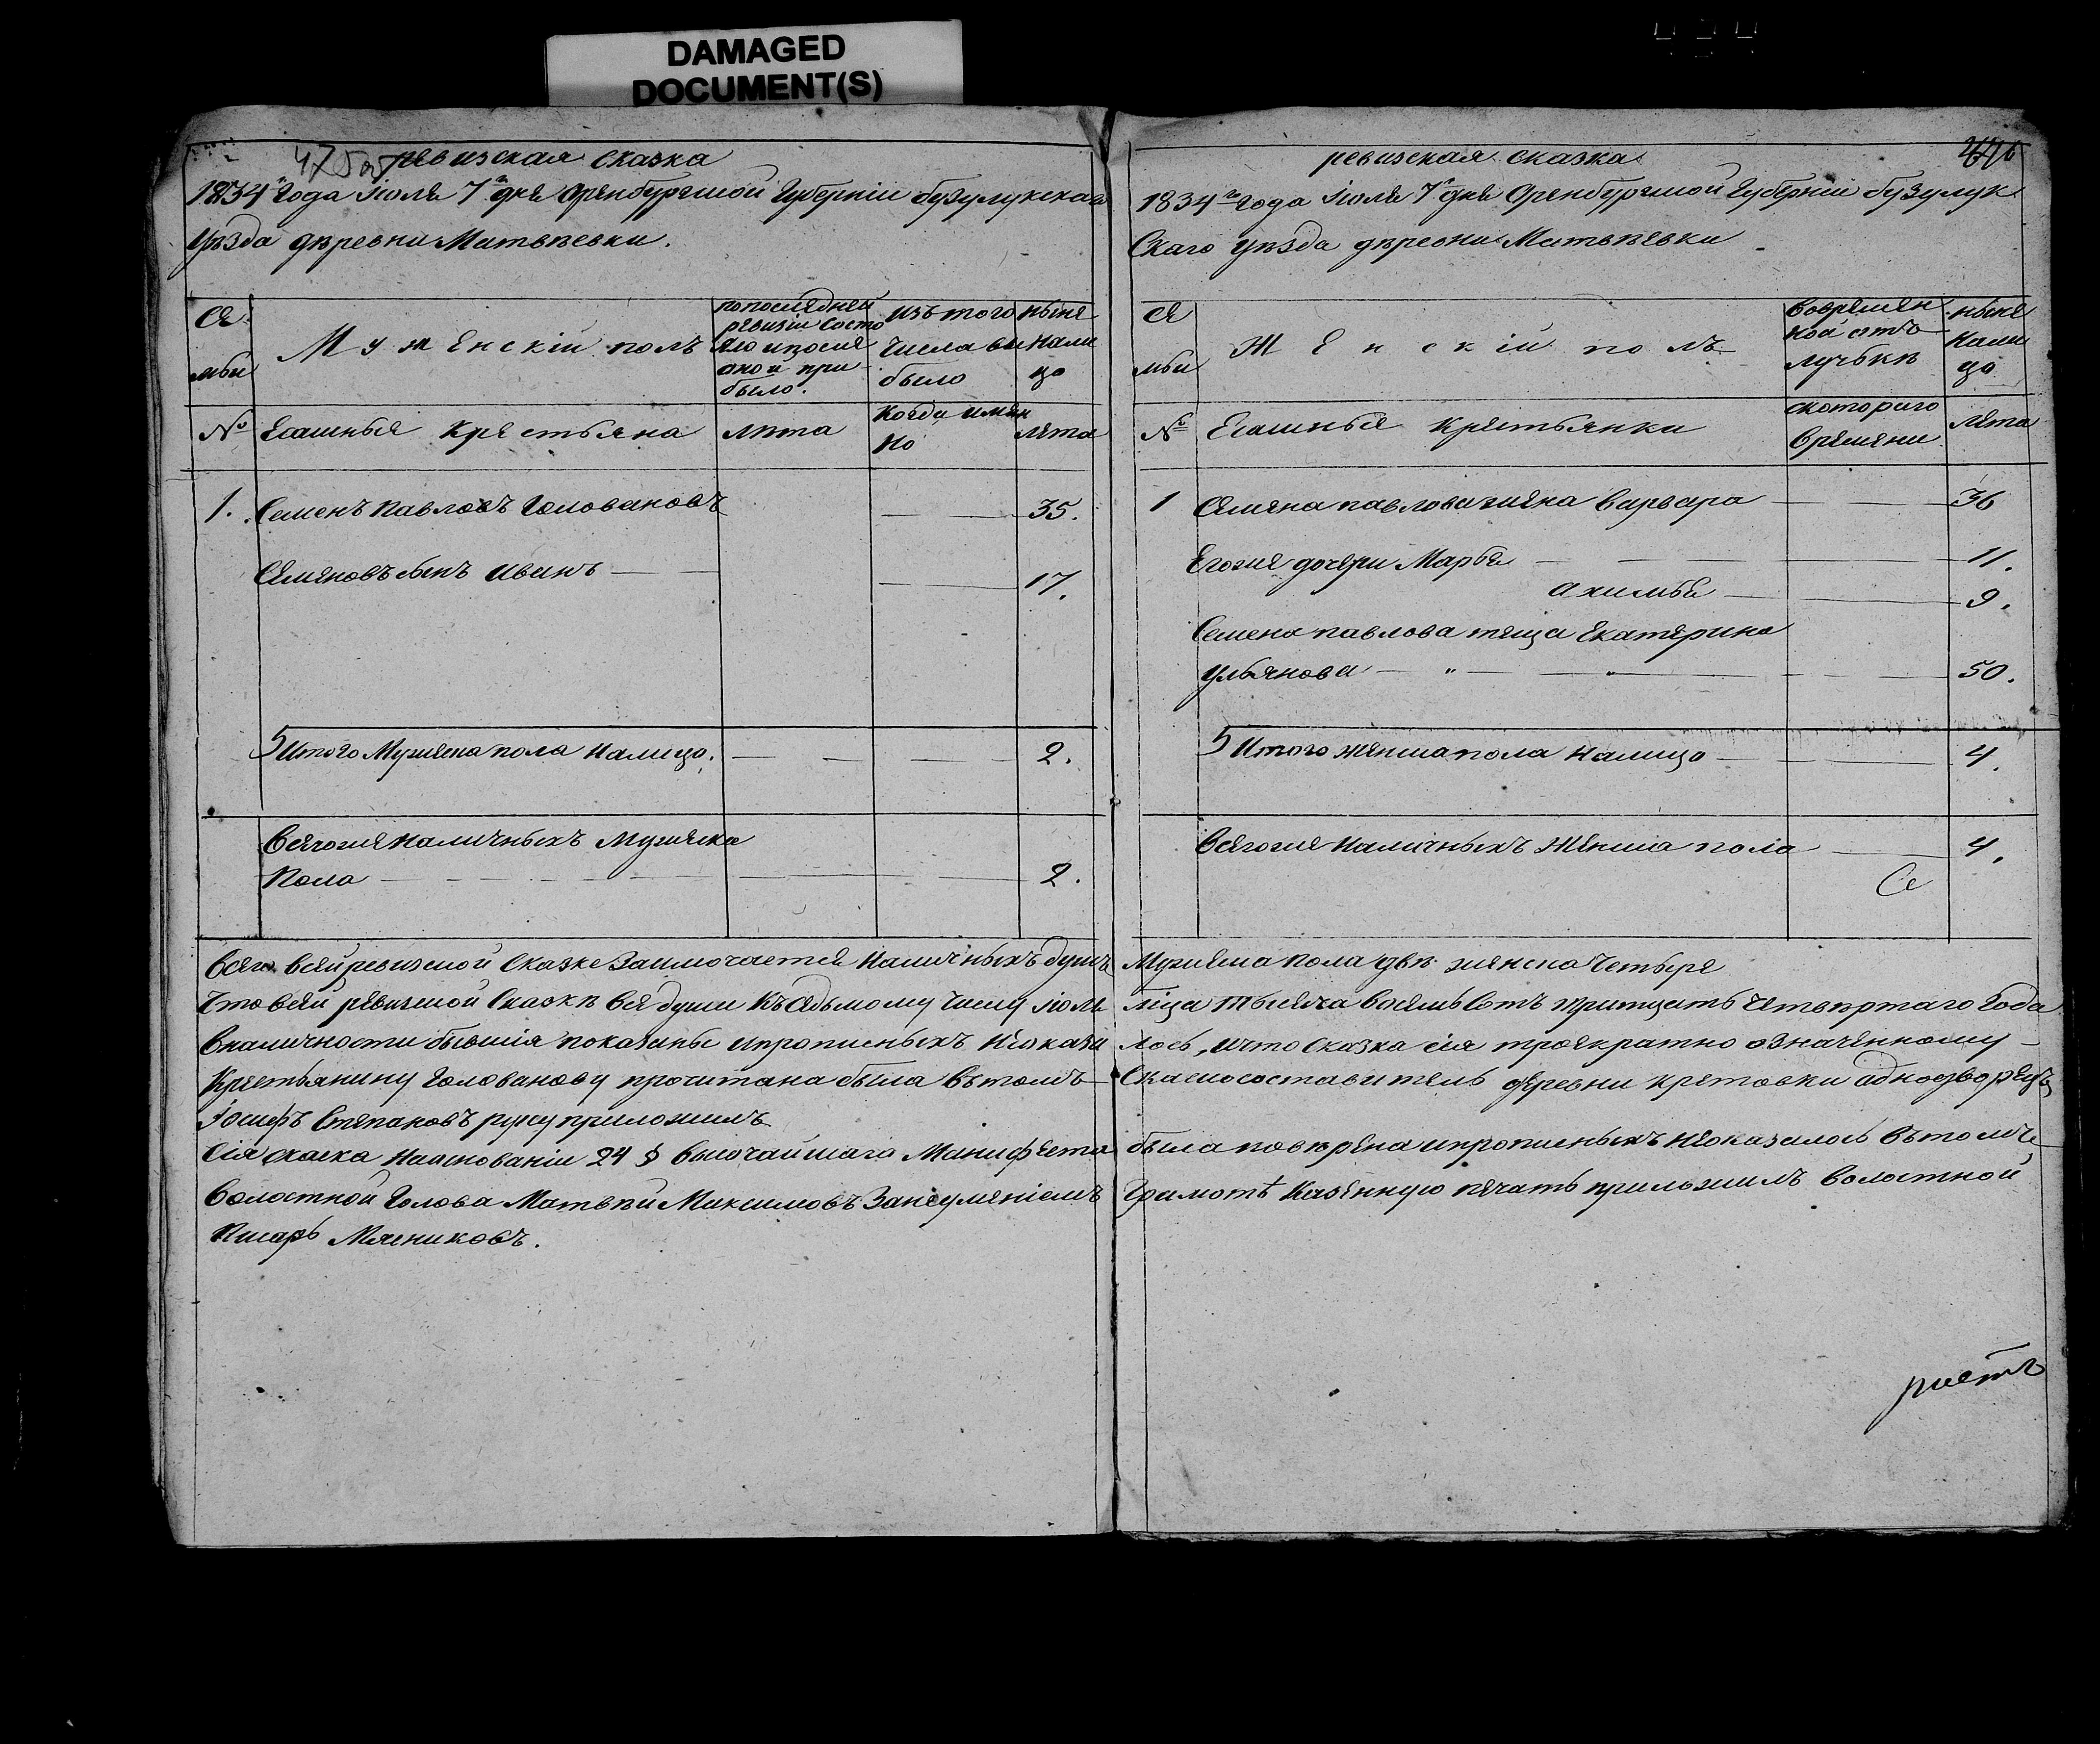 DAMAGED
DOCUMENT(S)
475 об
ревизская сказка
1834 года Июля 7 дня Оренбургской Губерніи бузулукскаго
уѣзда деревни Матвѣевки.
Се
мьи
Мужескій полъ
по последней
ревизіи состо
яло и после
оной при
было.
изъ того
числа вы
было
ныне
нали
цо
№
Ясашныя крестьяна
лѣта
когда имян
но
лета
1. Семенъ Павловъ Головановъ 35.
Семеновъ сынъ Иванъ 17.
Итого Мужеска пола налицо. 2.
Всегоже наличныхъ мужеска
пола 2.
ревизская сказка
1834 года Июля 7 дня Оренбургской Губерніи бузулук
скаго уѣзда деревни Матвѣевки
Се
мьи
Женскій полъ
во времен
ной отъ
лучькѣ
ныне
нали
цо
№
Ясашныя крестьянки
с котораго
времени
лета
1 Семена павлова жена варвара 36
Егоже дочери Марья 11.
Акилина 9.
Семена павлова теща Екатерина
ульянова 50.
Итого женска пола налицо 4.
Всегоже наличныхъ женска пола 4.
Всего всей ревизской сказке заключается наличныхъ душъ мужеска пола две женска четыре
Что в сей ревизской сказкѣ все души къ седьмому числу июля месяца тысяча восемь сотъ тритцать четвертаго года
в наличности бывшія показаны и прописныхъ не оказалось, и что сказка сія троекратно означенному
крестьянину Голованову прочитана была въ томъ сказкосоставитель деревни кретовки однодворецъ
Иосифъ Степановъ руку приложилъ
Сія скаска на основаніи 24 § высочайшаго Манифеста была поверена и прописныхъ не оказалось въ томъ
волостной Голова Матвѣй Максимовъ за неуменіемъ грамотѣ казенную печать приложилъ волостной
Писарь Мясниковъ.